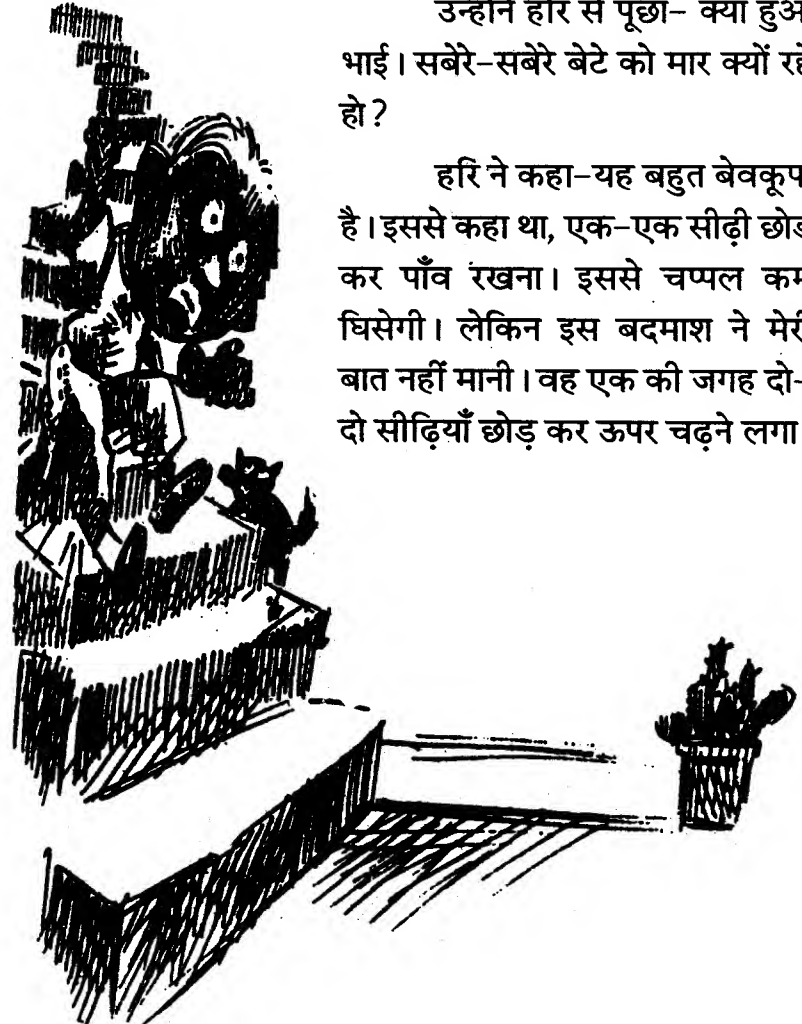 उन्होंने हरि से पूछा– क्या हुआ
भाई। सबेरे–सबेरे बेटे को मार क्यों रहे
हो?
हरि ने कहा–यह बहुत बेवकूफ
है। इससे कहा था, एक–एक सीढ़ी छोड़
कर पाँव रखना। इससे चप्पल कम
घिसेगी। लेकिन इस बदमाश ने मेरी
बात नहीं मानी। वह एक की जगह दो-
दो सीढ़ियाँ छोड़ कर ऊपर चढ़ने लगा